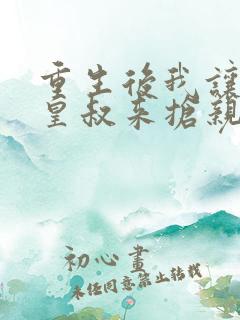 重生後我讓
皇叔来搶親
初心畫
未任同意禁止转载